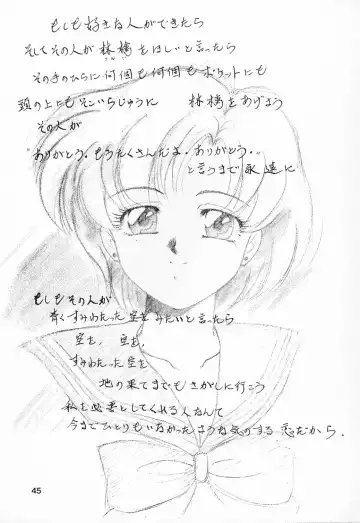 もしも好きな人ができたら
そしてその人が林檎をほしいと言ったら
その手のひらに何個も何個もポケットにも
頭の上にもそこいらじゅうに 林檎をあげよう
その人が
"ありがとう・もうたくさんだよ・ありがとう・"
と言うまで永遠に
もしもその人が
青くすみわたった空をみたいと言ったら
空を, 空を,
すみわたった空を
地の果てまでもさがしに行こう
私を必要としてくれる人なんて
今までひとりもいなかったような気のする 恋だから.
45